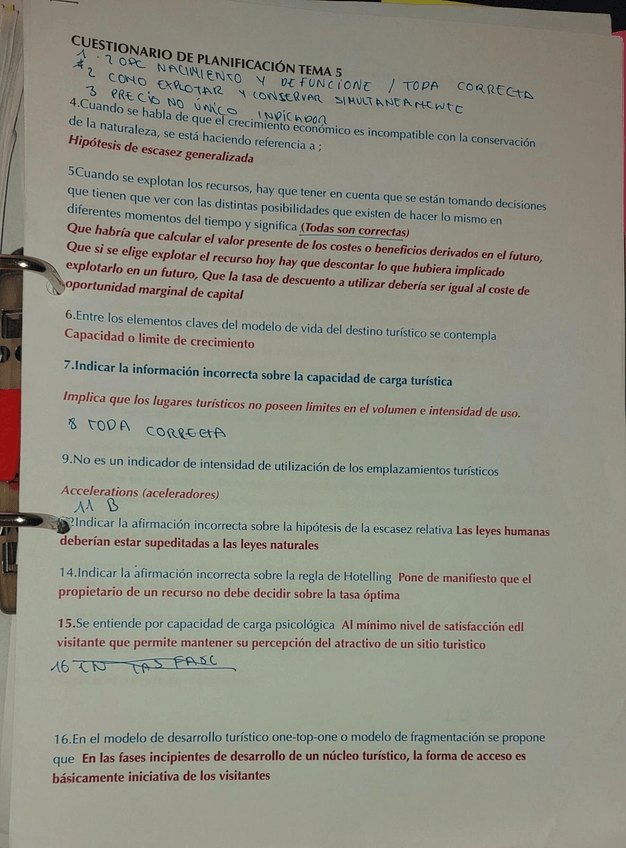 CUESTIONARIO DE PLANIFICACIÓN TEMA 5
1. 2 OPC NACIMIENTO Y DEFUNCIONE / TODA CORRECTA
2 COMO EXPLOTAR Y CONSERVAR SIMULTANEAMENTE
3 PRECIO NO ÚNICO INDICADOR
4.Cuando se habla de que el crecimiento económico es incompatible con la conservación
de la naturaleza, se está haciendo referencia a ;
Hipótesis de escasez generalizada
5Cuando se explotan los recursos, hay que tener en cuenta que se están tomando decisiones
que tienen que ver con las distintas posibilidades que existen de hacer lo mismo en
diferentes momentos del tiempo y significa (Todas son correctas)
Que habría que calcular el valor presente de los costes o beneficios derivados en el futuro,
Que si se elige explotar el recurso hoy hay que descontar lo que hubiera implicado
explotarlo en un futuro, Que la tasa de descuento a utilizar debería ser igual al coste de
oportunidad marginal de capital
6.Entre los elementos claves del modelo de vida del destino turístico se contempla
Capacidad o limite de crecimiento
7.Indicar la información incorrecta sobre la capacidad de carga turística
Implica que los lugares turísticos no poseen limites en el volumen e intensidad de uso.
8 TODA CORRECTA
9.No es un indicador de intensidad de utilización de los emplazamientos turísticos
Accelerations (aceleradores)
11 B
2Indicar la afirmación incorrecta sobre la hipótesis de la escasez relativa Las leyes humanas
deberían estar supeditadas a las leyes naturales
14.Indicar la afirmación incorrecta sobre la regla de Hotelling Pone de manifiesto que el
propietario de un recurso no debe decidir sobre la tasa óptima
15.Se entiende por capacidad de carga psicológica Al mínimo nivel de satisfacción edl
visitante que permite mantener su percepción del atractivo de un sitio turistico
16 EN LAS FASE
16.En el modelo de desarrollo turístico one-top-one o modelo de fragmentación se propone
que En las fases incipientes de desarrollo de un núcleo turístico, la forma de acceso es
básicamente iniciativa de los visitantes